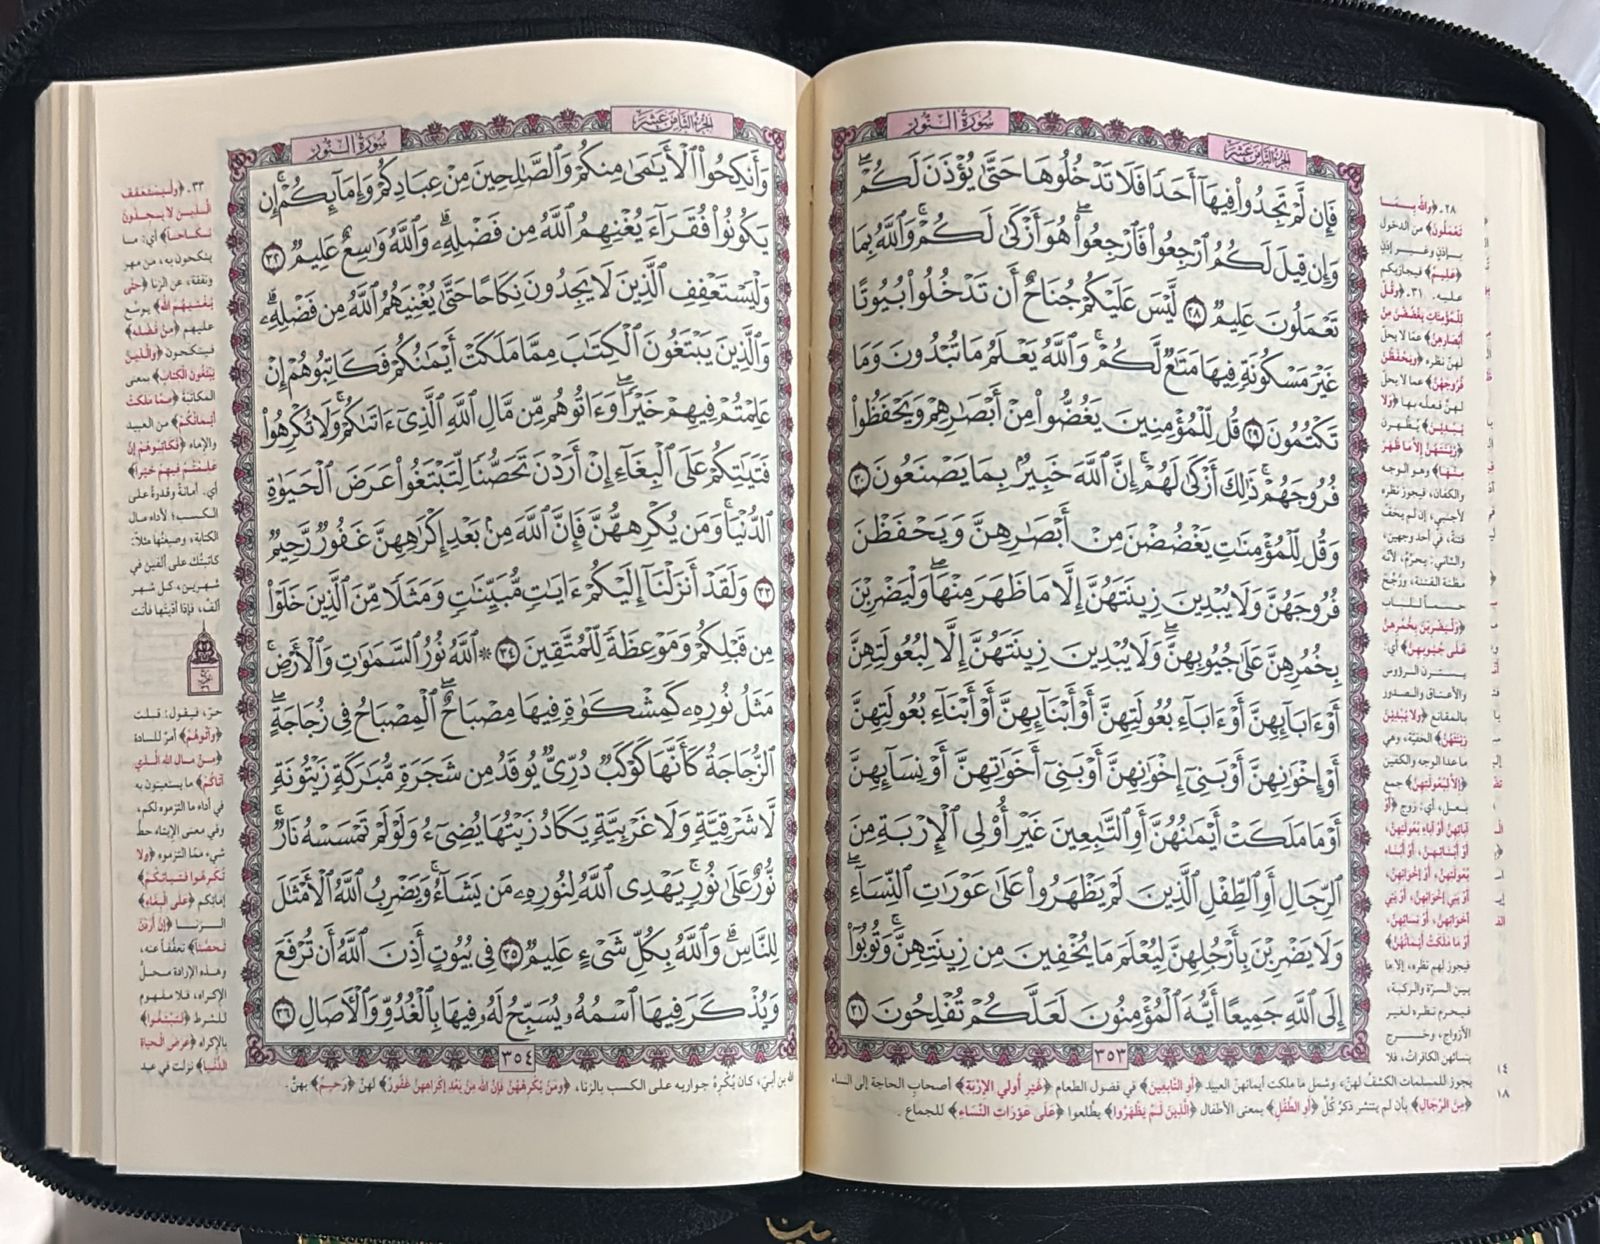 سُورَةُ النُّورِ
الجُزْءُ الثَّامِنَ عَشَرَ
فَإِن لَّمْ تَجِدُوا۟ فِيهَآ أَحَدًا فَلَا تَدْخُلُوهَا حَتَّىٰ يُؤْذَنَ لَكُمْ ۖ
وَإِن قِيلَ لَكُمُ ٱرْجِعُوا۟ فَٱرْجِعُوا۟ ۖ هُوَ أَزْكَىٰ لَكُمْ ۚ وَٱللَّهُ بِمَا
تَعْمَلُونَ عَلِيمٌ ٢٨ لَّيْسَ عَلَيْكُمْ جُنَاحٌ أَن تَدْخُلُوا۟ بُيُوتًا
غَيْرَ مَسْكُونَةٍ فِيهَا مَتَـٰعٌ لَّكُمْ ۚ وَٱللَّهُ يَعْلَمُ مَا تُبْدُونَ وَمَا
تَكْتُمُونَ ٢٩ قُل لِّلْمُؤْمِنِينَ يَغُضُّوا۟ مِنْ أَبْصَـٰرِهِمْ وَيَحْفَظُوا۟
فُرُوجَهُمْ ۚ ذَٰلِكَ أَزْكَىٰ لَهُمْ ۗ إِنَّ ٱللَّهَ خَبِيرٌۢ بِمَا يَصْنَعُونَ ٣٠
وَقُل لِّلْمُؤْمِنَـٰتِ يَغْضُضْنَ مِنْ أَبْصَـٰرِهِنَّ وَيَحْفَظْنَ
فُرُوجَهُنَّ وَلَا يُبْدِينَ زِينَتَهُنَّ إِلَّا مَا ظَهَرَ مِنْهَا ۖ وَلْيَضْرِبْنَ
بِخُمُرِهِنَّ عَلَىٰ جُيُوبِهِنَّ ۖ وَلَا يُبْدِينَ زِينَتَهُنَّ إِلَّا لِبُعُولَتِهِنَّ
أَوْ ءَابَآئِهِنَّ أَوْ ءَابَآءِ بُعُولَتِهِنَّ أَوْ أَبْنَآئِهِنَّ أَوْ أَبْنَآءِ بُعُولَتِهِنَّ
أَوْ إِخْوَٰنِهِنَّ أَوْ بَنِىٓ إِخْوَٰنِهِنَّ أَوْ بَنِىٓ أَخَوَٰتِهِنَّ أَوْ نِسَآئِهِنَّ
أَوْ مَا مَلَكَتْ أَيْمَـٰنُهُنَّ أَوِ ٱلتَّـٰبِعِينَ غَيْرِ أُو۟لِى ٱلْإِرْبَةِ مِنَ
ٱلرِّجَالِ أَوِ ٱلطِّفْلِ ٱلَّذِينَ لَمْ يَظْهَرُوا۟ عَلَىٰ عَوْرَٰتِ ٱلنِّسَآءِ ۖ
وَلَا يَضْرِبْنَ بِأَرْجُلِهِنَّ لِيُعْلَمَ مَا يُخْفِينَ مِن زِينَتِهِنَّ ۚ وَتُوبُوٓا۟
إِلَى ٱللَّهِ جَمِيعًا أَيُّهَ ٱلْمُؤْمِنُونَ لَعَلَّكُمْ تُفْلِحُونَ ٣١
٣٥٣
٢٨ـ ﴿والله بِمَا
تَعْمَلُونَ﴾ من الدخول
بإذن وغير إذن
﴿عَلِيمٌ﴾ فيجازيكم
عليه. ٣١ـ ﴿وَقُل
لِلْمُؤْمِنَاتِ يَغْضُضْنَ مِنْ
أَبْصَارِهِنَّ﴾ عمّا لا يحلّ
لهنّ نظره ﴿وَيَحْفَظْنَ
فُرُوجَهُنَّ﴾ عما لا يحلّ
لهنّ فعله بها ﴿وَلَا
يُبْدِينَ﴾ يُظهرن
﴿زِينَتَهُنَّ إِلَّا مَا ظَهَرَ
مِنْهَا﴾ وهو الوجه
والكفان، فيجوز نظره
لأجنبي، إن لم يخف
فتنةً، في أحد وجهين،
والثاني: يحرُمُ، لأنّه
مظنة الفتنة، ورُجِّح
حسماً للباب
﴿وَلْيَضْرِبْنَ بِخُمُرِهِنَّ
عَلَى جُيُوبِهِنَّ﴾ أي:
يسترن الرؤوس
والأعناق والصدور
بالمقانع ﴿وَلَا يُبْدِينَ
زِينَتَهُنَّ﴾ الخفيّة، وهي
ما عدا الوجه والكفين
﴿إِلَّا لِبُعُولَتِهِنَّ﴾ جمع
بعل، أي: زوج ﴿أَوْ
آبَائِهِنَّ أَوْ آبَاءِ بُعُولَتِهِنَّ،
أَوْ أَبْنَائِهِنَّ، أَوْ أَبْنَاء
بُعُولَتِهِنَّ، أَوْ إِخْوَانِهِنَّ،
أَوْ بَنِي إِخْوَانِهِنَّ، أَوْ بَنِي
أَخَوَاتِهِنَّ، أَوْ نِسَائِهِنَّ،
أَوْ مَا مَلَكَتْ أَيْمَانُهُنَّ﴾
فيجوز لهم نظره، إلا ما
بين السرّة والركبة،
فيحرم نظره لغير
الأزواج، وخرج
بنسائهن الكافراتُ، فلا
يجوز للمسلمات الكشفُ لهنّ، وشمل ما ملكت أيمانهنّ العبيد ﴿أَوِ التَّابِعِينَ﴾ في فضول الطعام ﴿غَيْرِ أُولِي الإِرْبَةِ﴾ أصحاب الحاجة إلى النساء
﴿مِنَ الرِّجَالِ﴾ بأن لم ينتشر ذكرُ كُلٍّ ﴿أَوِ الطِّفْلِ﴾ بمعنى الأطفال ﴿الَّذِينَ لَمْ يَظْهَرُوا﴾ يطّلعوا ﴿عَلَى عَوْرَاتِ النِّسَاءِ﴾ للجماع.
الجُزْءُ الثَّامِنَ عَشَرَ
سُورَةُ النُّورِ
وَأَنكِحُوا۟ ٱلْأَيَـٰمَىٰ مِنكُمْ وَٱلصَّـٰلِحِينَ مِنْ عِبَادِكُمْ وَإِمَآئِكُمْ ۚ إِن
يَكُونُوا۟ فُقَرَآءَ يُغْنِهِمُ ٱللَّهُ مِن فَضْلِهِۦ ۗ وَٱللَّهُ وَٰسِعٌ عَلِيمٌ ٣٢
وَلْيَسْتَعْفِفِ ٱلَّذِينَ لَا يَجِدُونَ نِكَاحًا حَتَّىٰ يُغْنِيَهُمُ ٱللَّهُ مِن فَضْلِهِۦ ۗ
وَٱلَّذِينَ يَبْتَغُونَ ٱلْكِتَـٰبَ مِمَّا مَلَكَتْ أَيْمَـٰنُكُمْ فَكَاتِبُوهُمْ إِنْ
عَلِمْتُمْ فِيهِمْ خَيْرًا ۖ وَءَاتُوهُم مِّن مَّالِ ٱللَّهِ ٱلَّذِىٓ ءَاتَىٰكُمْ ۚ وَلَا تُكْرِهُوا۟
فَتَيَـٰتِكُمْ عَلَى ٱلْبِغَآءِ إِنْ أَرَدْنَ تَحَصُّنًا لِّتَبْتَغُوا۟ عَرَضَ ٱلْحَيَوٰةِ
ٱلدُّنْيَا ۚ وَمَن يُكْرِههُّنَّ فَإِنَّ ٱللَّهَ مِنۢ بَعْدِ إِكْرَٰهِهِنَّ غَفُورٌ رَّحِيمٌ
٣٣ وَلَقَدْ أَنزَلْنَآ إِلَيْكُمْ ءَايَـٰتٍ مُّبَيِّنَـٰتٍ وَمَثَلًا مِّنَ ٱلَّذِينَ خَلَوْا۟
مِن قَبْلِكُمْ وَمَوْعِظَةً لِّلْمُتَّقِينَ ٣٤ ۞ ٱللَّهُ نُورُ ٱلسَّمَـٰوَٰتِ وَٱلْأَرْضِ ۚ
مَثَلُ نُورِهِۦ كَمِشْكَوٰةٍ فِيهَا مِصْبَاحٌ ۖ ٱلْمِصْبَاحُ فِى زُجَاجَةٍ ۖ
ٱلزُّجَاجَةُ كَأَنَّهَا كَوْكَبٌ دُرِّىٌّ يُوقَدُ مِن شَجَرَةٍ مُّبَـٰرَكَةٍ زَيْتُونَةٍ
لَّا شَرْقِيَّةٍ وَلَا غَرْبِيَّةٍ يَكَادُ زَيْتُهَا يُضِىٓءُ وَلَوْ لَمْ تَمْسَسْهُ نَارٌ ۚ
نُّورٌ عَلَىٰ نُورٍ ۗ يَهْدِى ٱللَّهُ لِنُورِهِۦ مَن يَشَآءُ ۚ وَيَضْرِبُ ٱللَّهُ ٱلْأَمْثَـٰلَ
لِلنَّاسِ ۗ وَٱللَّهُ بِكُلِّ شَىْءٍ عَلِيمٌ ٣٥ فِى بُيُوتٍ أَذِنَ ٱللَّهُ أَن تُرْفَعَ
وَيُذْكَرَ فِيهَا ٱسْمُهُۥ يُسَبِّحُ لَهُۥ فِيهَا بِٱلْغُدُوِّ وَٱلْـَٔاصَالِ ٣٦
٣٥٤
٣٣ـ ﴿وَلْيَسْتَعْفِفِ
الَّذِينَ لَا يَجِدُونَ
نِكَاحاً﴾ أي: ما
ينكحون به، من مهر
ونفقة، عن الزنا ﴿حَتَّى
يُغْنِيَهُمُ الله﴾ يوسّع
عليهم ﴿مِنْ فَضْلِهِ﴾
فينكحون ﴿وَالَّذِينَ
يَبْتَغُونَ الْكِتَابَ﴾ بمعنى
المكاتبة ﴿مِمَّا مَلَكَتْ
أَيْمَانُكُمْ﴾ من العبيد
والإماء ﴿فَكَاتِبُوهُمْ إِنْ
عَلِمْتُمْ فِيهِمْ خَيْراً﴾
أي: أمانةً وقدرةً على
الكسب؛ لأداء مال
الكتابة، وصيغتُها مثلاً:
كاتبتُك على ألفين في
شهرين، كل شهر
ألف، فإذا أدّيتَها فأنت
حرّ، فيقول: قبلت
﴿وَآتُوهُمْ﴾ أمرٌ للسادة
﴿مِنْ مَالِ الله الَّذِي
آتَاكُمْ﴾ ما يستعينون به
في أداء ما التزموه لكم،
وفي معنى الإيتاء حطُّ
شيء ممّا التزموه ﴿وَلَا
تُكْرِهُوا فَتَيَاتِكُمْ﴾
إماءَكم ﴿عَلَى الْبِغَاءِ﴾
الزنا ﴿إِنْ أَرَدْنَ
تَحَصُّناً﴾ تعفّفاً عنه،
وهذه الإرادة محلُّ
الإكراه، فلا مفهوم
للشرط ﴿لِتَبْتَغُوا﴾
بالإكراه ﴿عَرَضَ الْحَيَاةِ
الدُّنْيَا﴾ نزلت في عبد
الله بن أبيّ، كان يُكْرِهُ جواريه على الكسب بالزنا، ﴿وَمَنْ يُكْرِهْهُنَّ فَإِنَّ الله مِنْ بَعْدِ إِكْرَاهِهِنَّ غَفُورٌ﴾ لهنّ ﴿رَحِيمٌ﴾ بهنّ.